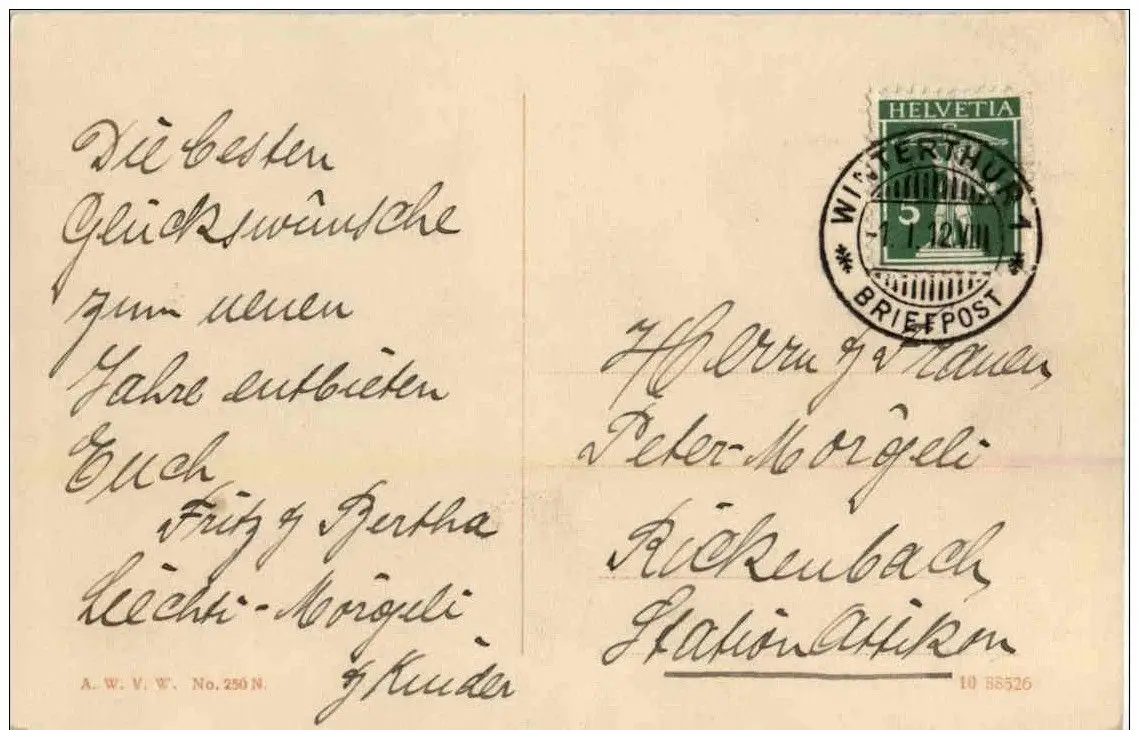 Die besten
Glückswünsche
zum neuen
Jahre entbieten
Euch
Fritz & Bertha
Liechti-Mörgeli
& Kinder
A. W. V. W. No. 250 N.
HELVETIA
5
WINTERTHUR 1
-1. I. 12.VIII
BRIEFPOST
Herrn & Frauen
Peter-Mörgeli
Rickenbach
Station Attikon
10 88526